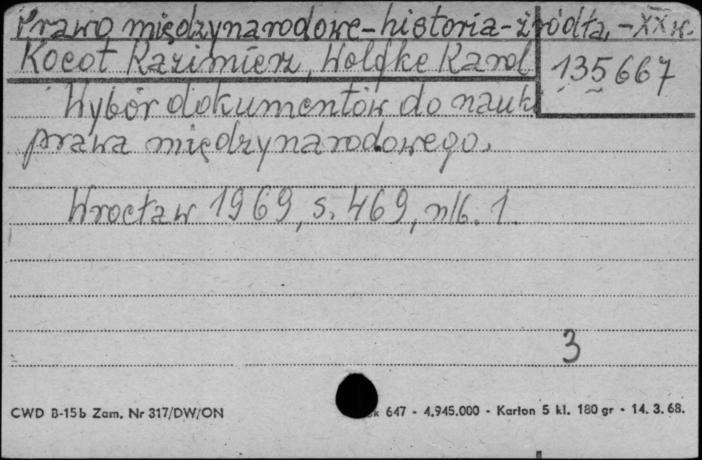 Prawo międzynarodowe - historia - źródła, - XX w.
Kocot Kazimierz, Wolfke Karol
135667
Wybór dokumentów do nauki
prawa międzynarodowego.
Wrocław 1969, s. 469, nlb. 1.
3
CWD B-15b Zam. Nr 317/DW/ON
647 - 4.945.000 - Karton 5 kl. 180 gr - 14. 3. 68.